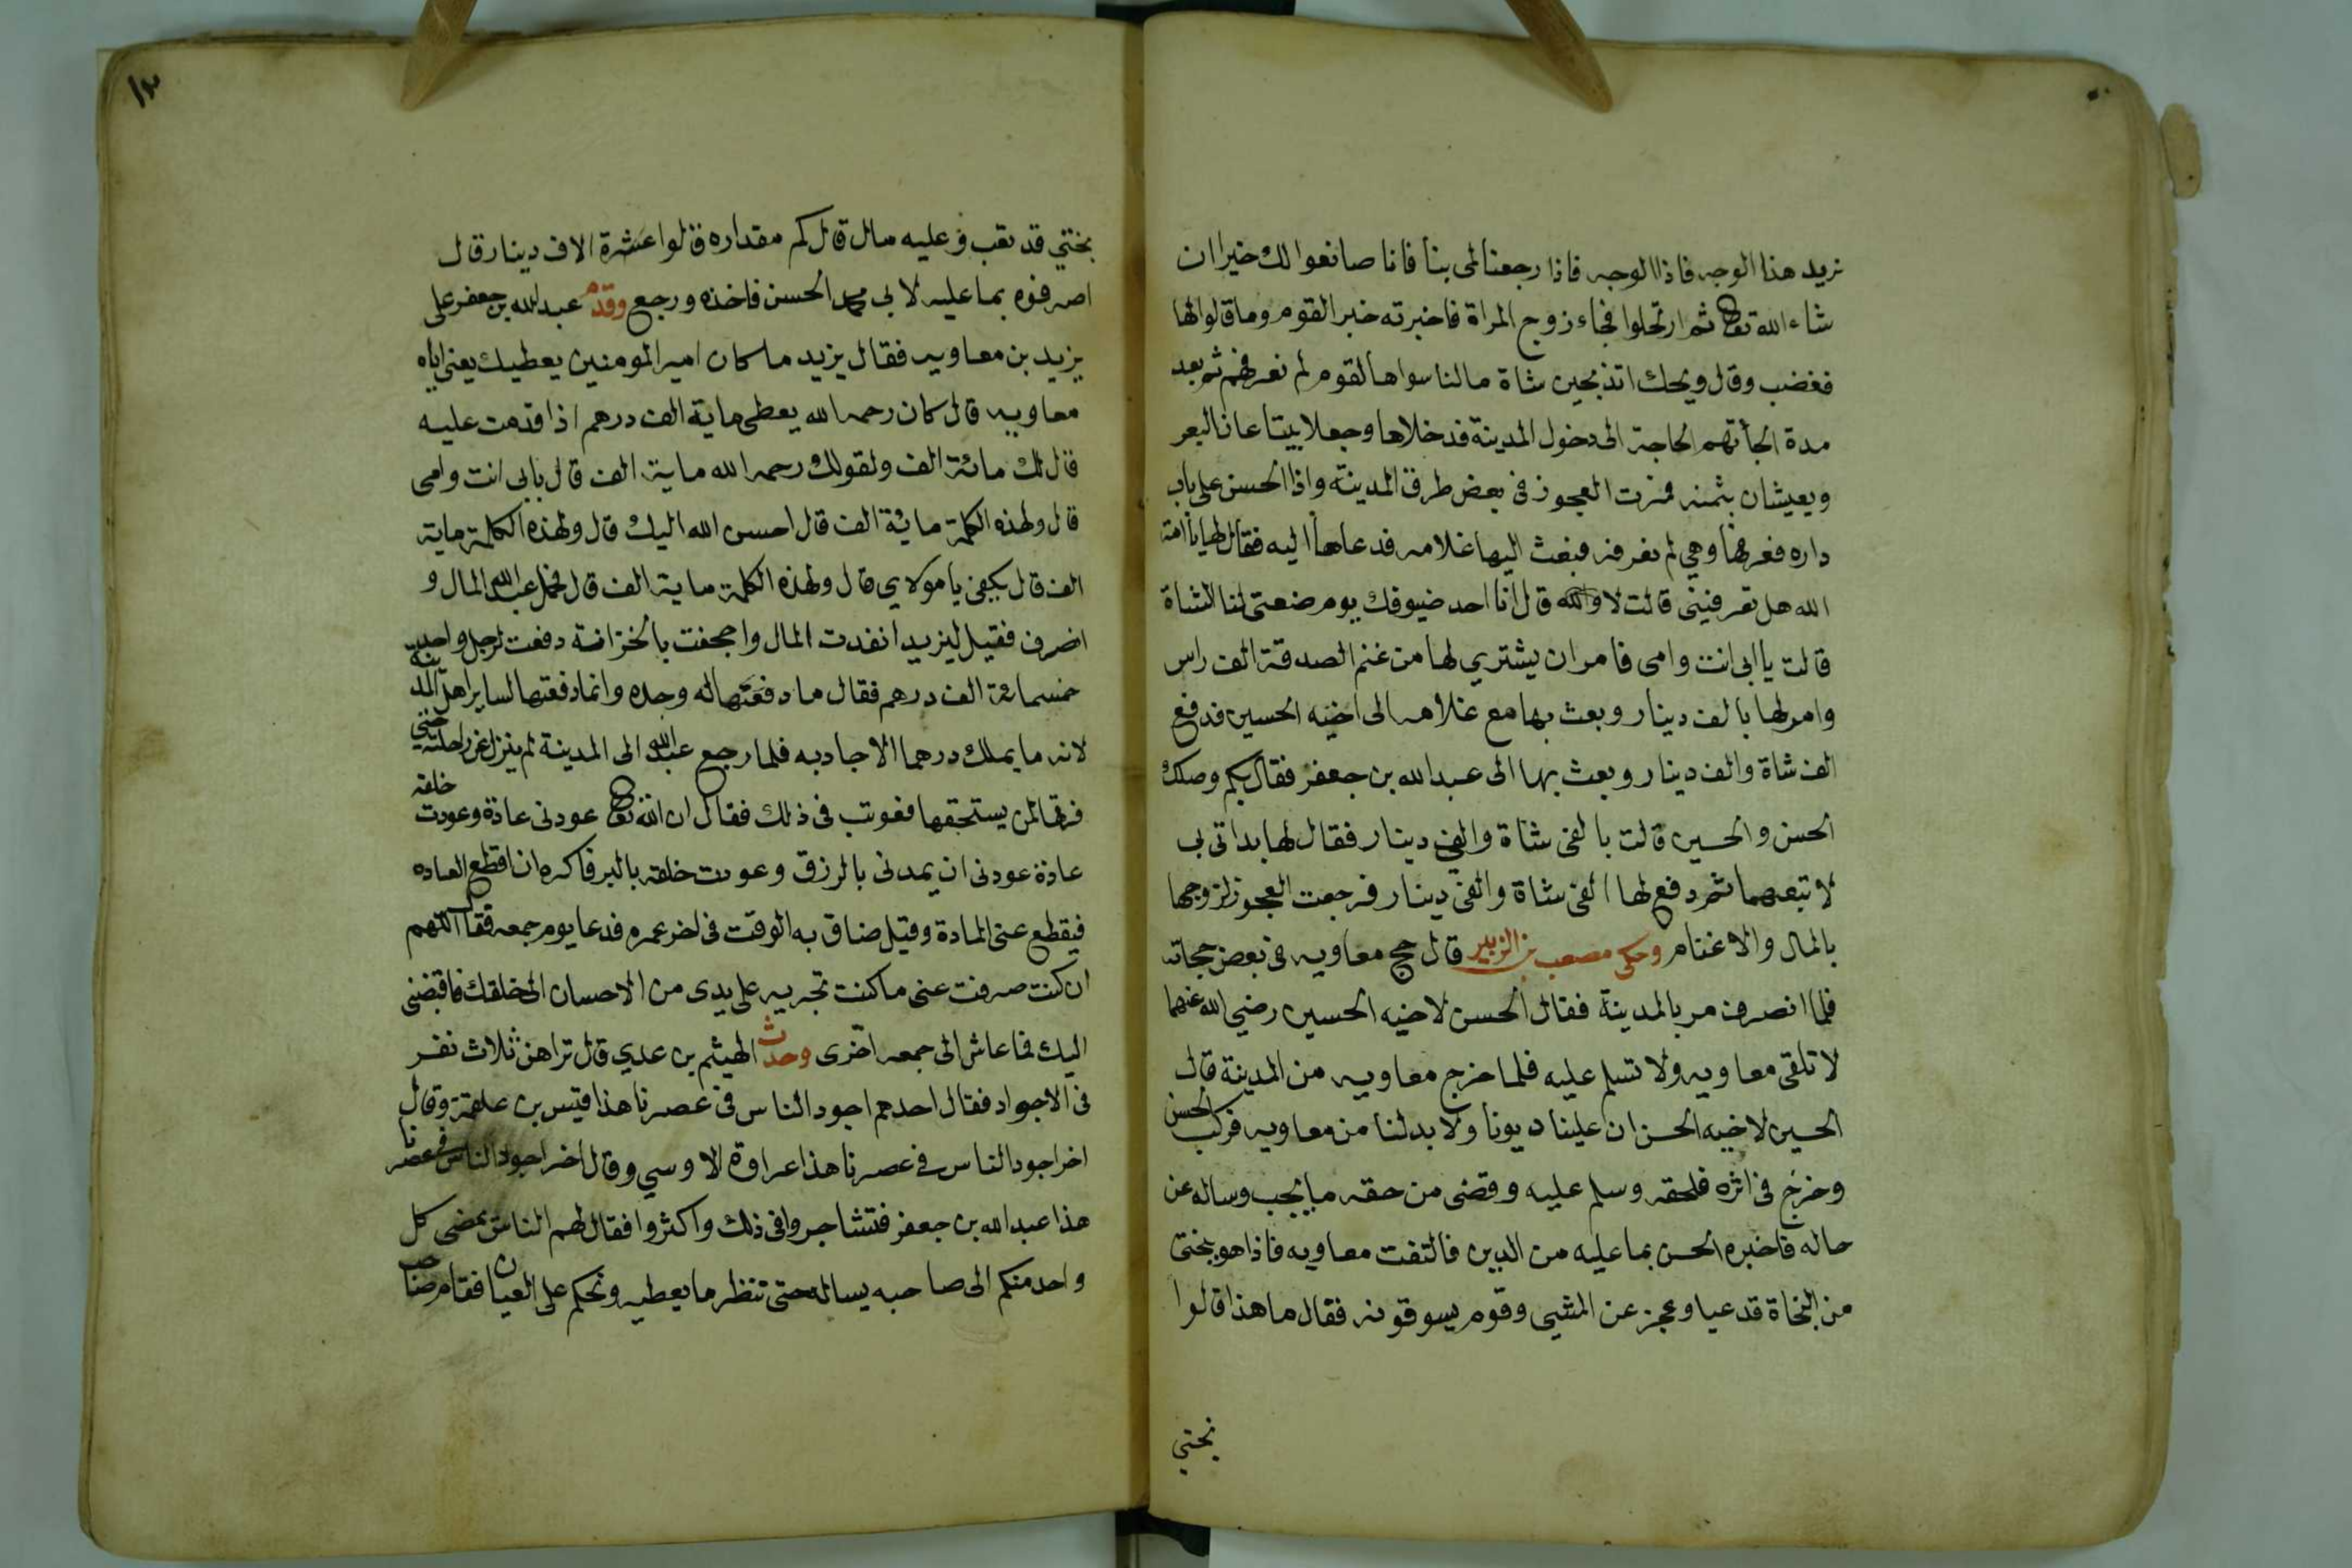 نريد هذا الوجه فاذا الوجه فاذا رجعنا لمى بنا فانا صانعوا لك خيرا ان
شاء الله تعالى ثم ارتحلوا فجاء زوج المراة فاخبرته خبر القوم وما قالوا لها
فغضب وقال ويحك اتذبحين شاة مالنا سواها لقوم لم نعرفهم ثم بعد
مدة الجأتهم الحاجة الى دخول المدينة فدخلاها وجعلا يبتاعان البعر
ويعيشان بثمنه فمرت العجوز فى بعض طرق المدينة واذا الحسن على باب
داره فعرفها وهي لم تعرفه فبعث اليها غلامه فدعاها اليه فقال لها يا أمة
الله هل تعرفينى قالت لا والله قال انا احد ضيوفك يوم ضعتى لنا الشاة
قالت يا ابى انت وامى فامر ان يشترى لها من غنم الصدقة الف راس
وامر لها بالف دينار وبعث بها مع غلامه الى اخيه الحسين فدفع
الف شاة والف دينار وبعث بها الى عبد الله بن جعفر فقال بكم وصلك
الحسن والحسين قالت بالفى شاة والفي دينار فقال لها بداتى بى
لا تبعهما ثم دفع لها الفى شاة والفى دينار فرجعت العجوز لزوجها
بالمال والاغنام وحكى مصعب بن الزبير قال حج معاويه فى بعض حجاته
فلما انصرف مر بالمدينة فقال الحسن لاخيه الحسين رضي الله عنهما
لا تلقى معاويه ولا تسلم عليه فلما خرج معاويه من المدينة قال
الحسين لاخيه الحسن ان علينا ديونا ولا بد لنا من معاويه فركب الحسن
وخرج فى اثره فلحقه وسلم عليه وقضى من حقه ما يجب وساله عن
حاله فاخبره الحسن بما عليه من الدين فالتفت معاويه فاذا هو بختى
من البخاة قد عيا وعجز عن المشي وقوم يسوقونه فقال ما هذا قالوا
بختي
١٣
بختي قد تعب وعليه مال قال كم مقداره قالوا عشرة الاف دينار قال
اصرفوه بما عليه لابى محمد الحسن فاخذه ورجع وقدم عبد الله بن جعفر على
يزيد بن معاويه فقال يزيد ما كان امير المومنين يعطيك يعنى اباه
معاويه قال كان رحمه الله يعطى ماية الف درهم اذا قدمت عليه
قال لك مائة الف ولقولك رحمه الله ماية الف قال بابى انت وامى
قال ولهذه الكلمة مائة الف قال احسن الله اليك قال ولهذه الكلمة ماية
الف قال يكفى يا مولاي قال ولهذه الكلمة ماية الف قال فحمل عبد الله المال و
انصرف فقيل ليزيد انفدت المال واجحفت بالخزانة دفعت لرجل واحد
خمسمائة الف درهم فقال ما دفعتها له وحده وانما دفعتها لساير اهل المدينة
لانه ما يملك درهما الا جاد به فلما رجع عبد الله الى المدينة لم ينزل عن راحلته حتى
فرقها لمن يستحقها فعوتب فى ذلك فقال ان الله تعالى عودنى عادة وعودت خلقه
عادة عودنى ان يمدنى بالرزق وعودت خلقه بالبر فاكره ان اقطع العاده
فيقطع عنى المادة وقيل ضاق به الوقت فى اخر عمره فدعا يوم جمعه فقال اللهم
ان كنت صرفت عنى ما كنت تجريه على يدى من الاحسان الى خلقك فاقبضنى
اليك فما عاش الى جمعه اخرى وحدث الهيثم بن عدي قال تراهن ثلاث نفر
فى الاجواد فقال احدهم اجود الناس فى عصرنا هذا قيس بن علهة وقال
اخر اجود الناس فى عصرنا هذا عراوة الاوسي وقال اخر اجود الناس فى عصرنا
هذا عبد الله بن جعفر فتشاجروا فى ذلك واكثروا فقال لهم الناس يمضى كل
واحد منكم الى صاحبه يساله حتى تنظر ما يعطيه ونحكم على العيان فقام صاحب